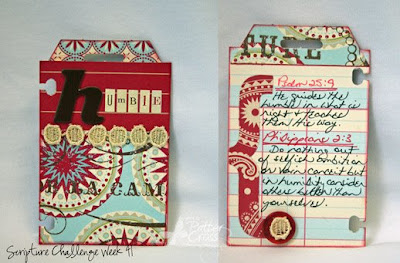 humble
Psalm 25:9
He guides the
humble in what is
right & teaches
them His way.
Philippians 2:3
Do nothing out
of selfish ambition
or vain conceit but
in humility consider
others better than
yourselves.
Scripture Challenge Week 41